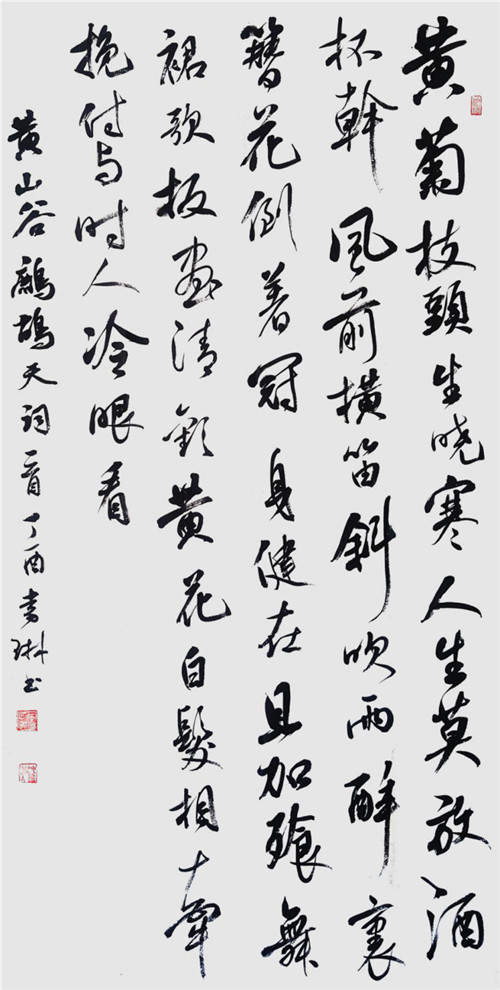 黄菊枝頭生晓寒人生莫放酒
杯幹風前横笛斜吹雨醉裏
簪花倒着冠身健在且加飱舞
裙歌板盡清歡黄花白髮相牽
挽付与时人冷眼看
黄山谷鷓鴣天词一首丁酉琳书